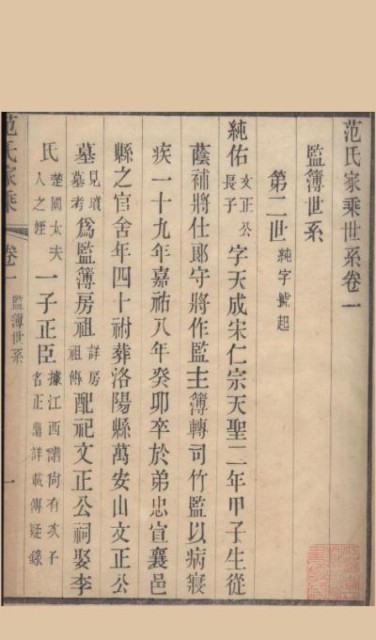 范氏家乘世系卷一
監簿世系
第二世 純字號起
純佑 文正公長子 字天成宋仁宗天聖二年甲子生從
蔭補將仕郎守將作監主簿轉司竹監以病寢
疾一十九年嘉祐八年癸卯卒於弟忠宣襄邑
縣之官舍年四十祔葬洛陽縣萬安山文正公
墓 見墳墓考 爲監簿房祖 詳房祖傳 配祀文正公祠娶李
氏 楚國太夫人之姪 一子正臣 據江西譜尚有次子名正 詳載傳疑錄
范氏家乘 卷一 監簿世系 一